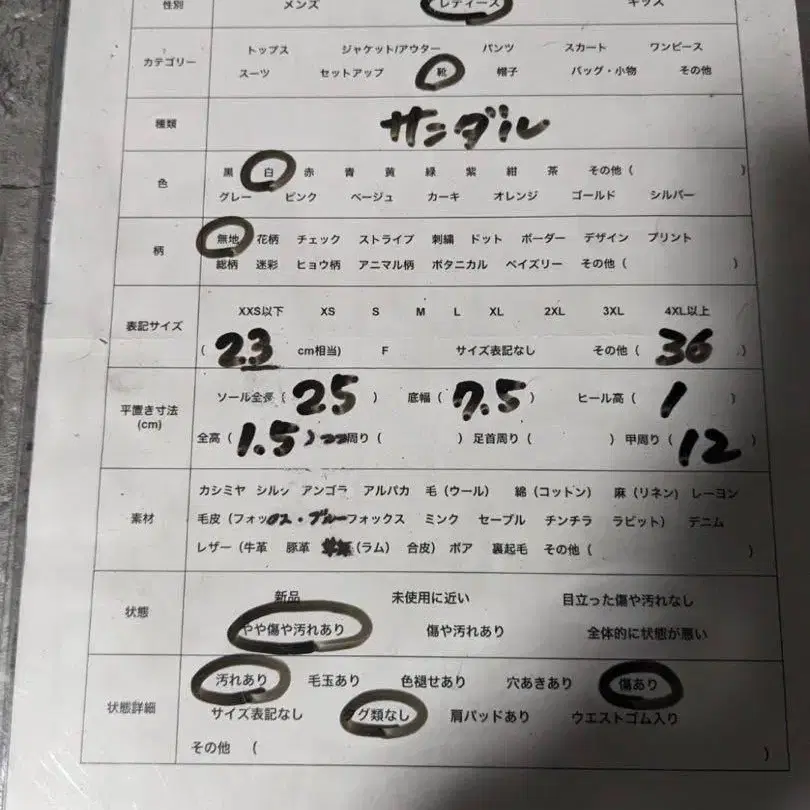 性別 メンズ レディース キッズ
カテゴリー トップス ジャケット/アウター パンツ スカート ワンピース
スーツ セットアップ 靴 帽子 バッグ・小物 その他
種類 サンダル
色 黒 白 赤 青 黄 緑 紫 紺 茶 その他 ( )
グレー ピンク ベージュ カーキ オレンジ ゴールド シルバー
柄 無地 花柄 チェック ストライプ 刺繍 ドット ボーダー デザイン プリント
総柄 迷彩 ヒョウ柄 アニマル柄 ボタニカル ペイズリー その他 ( )
表記サイズ XXS以下 XS S M L XL 2XL 3XL 4XL以上
( 23 cm相当) F サイズ表記なし その他 ( 36 )
平置き寸法 (cm) ソール全長 ( 25 ) 底幅 ( 7.5 ) ヒール高 ( 1 )
全高 ( 1.5 ) 周り ( ) 足首周り ( ) 甲周り ( 12 )
素材 カシミヤ シルク アンゴラ アルパカ 毛 (ウール) 綿 (コットン) 麻 (リネン) レーヨン
毛皮 (フォックス・ブルーフォックス ミンク セーブル チンチラ ラビット) デニム
レザー (牛革 豚革 (ラム) 合皮) ボア 裏起毛 その他 ( )
状態 新品 未使用に近い 目立った傷や汚れなし
やや傷や汚れあり 傷や汚れあり 全体的に状態が悪い
状態詳細 汚れあり 毛玉あり 色褪せあり 穴あきあり 傷あり
サイズ表記なし タグ類なし 肩パッドあり ウエストゴム入り
その他 ( )